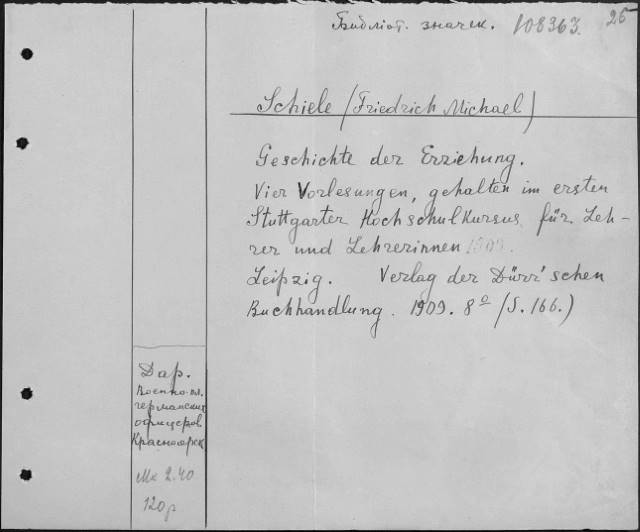 Библиот. значек. 108363. 25
Schiele (Friedrich Michael)
Geschichte der Erziehung.
Vier Vorlesungen, gehalten im ersten
Stuttgarter Hochschulkursus für Leh-
rer und Lehrerinnen 1909.
Leipzig. Verlag der Dürr'schen
Buchhandlung. 1909. 8º (S. 166.)
Дар.
Военно-пл.
германских
офицеров
Красноярск
Mk 2.40
120 р